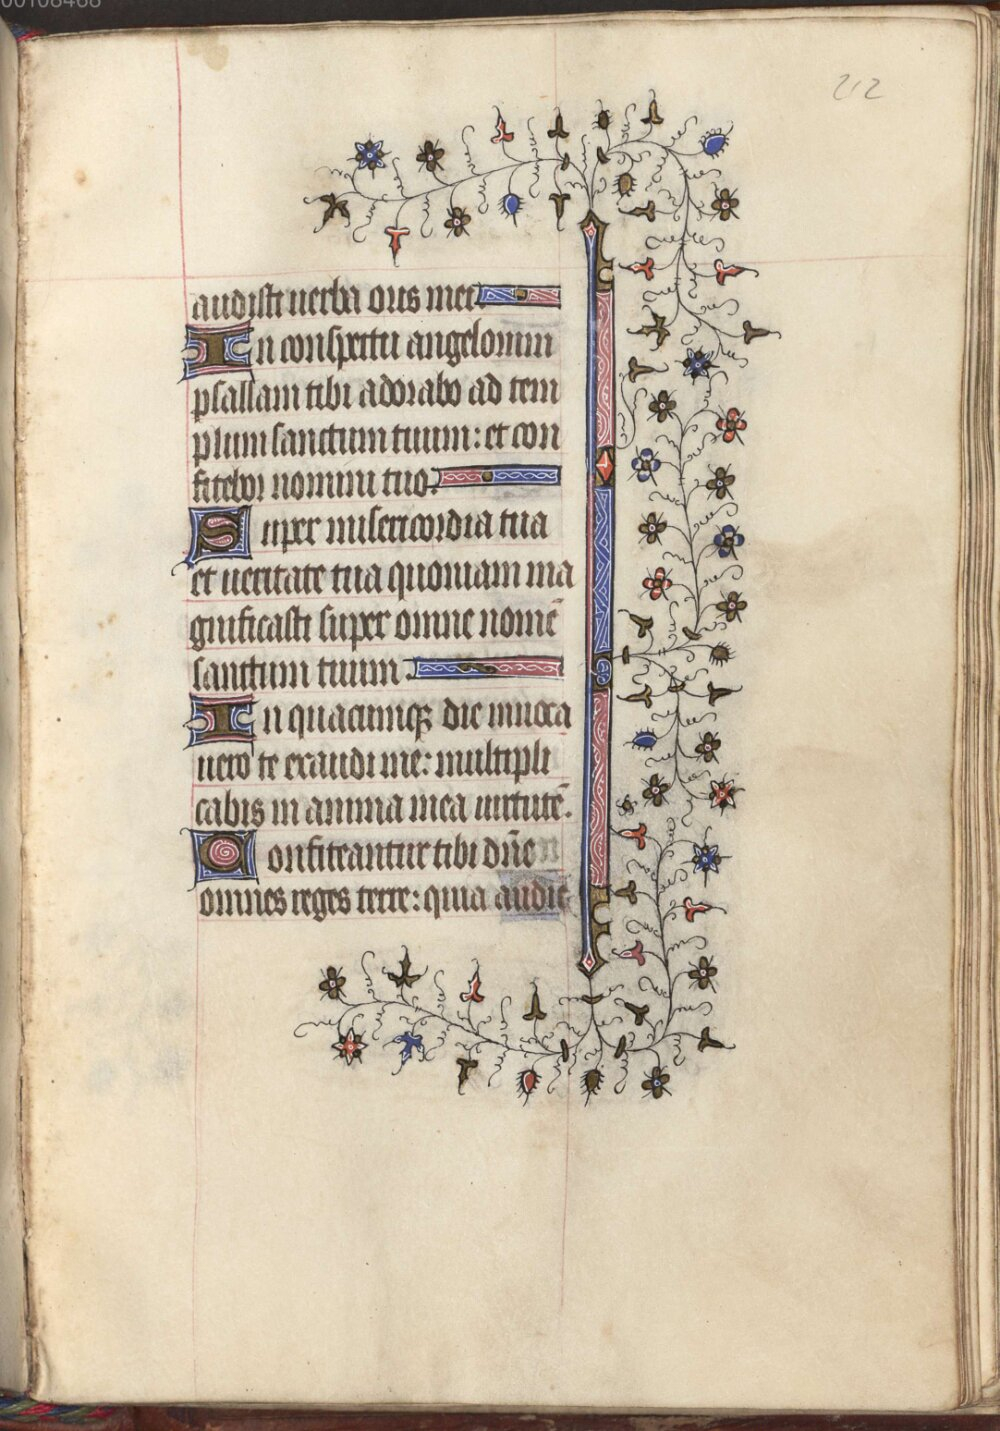 00108468
212
audisti uerba oris mei.
In conspectu angelorum
psallam tibi adorabo ad tem
plum sanctum tuum: et con
fitebor nomini tuo.
Super misericordia tua
et ueritate tua quoniam ma
gnificasti super omne nomē
sanctum tuum.
In quacumqꝫ die inuoca
uero te exaudi me: multipli
cabis in anima mea uirtutē.
Confiteantur tibi dn̄e
omnes reges terre: quia audie